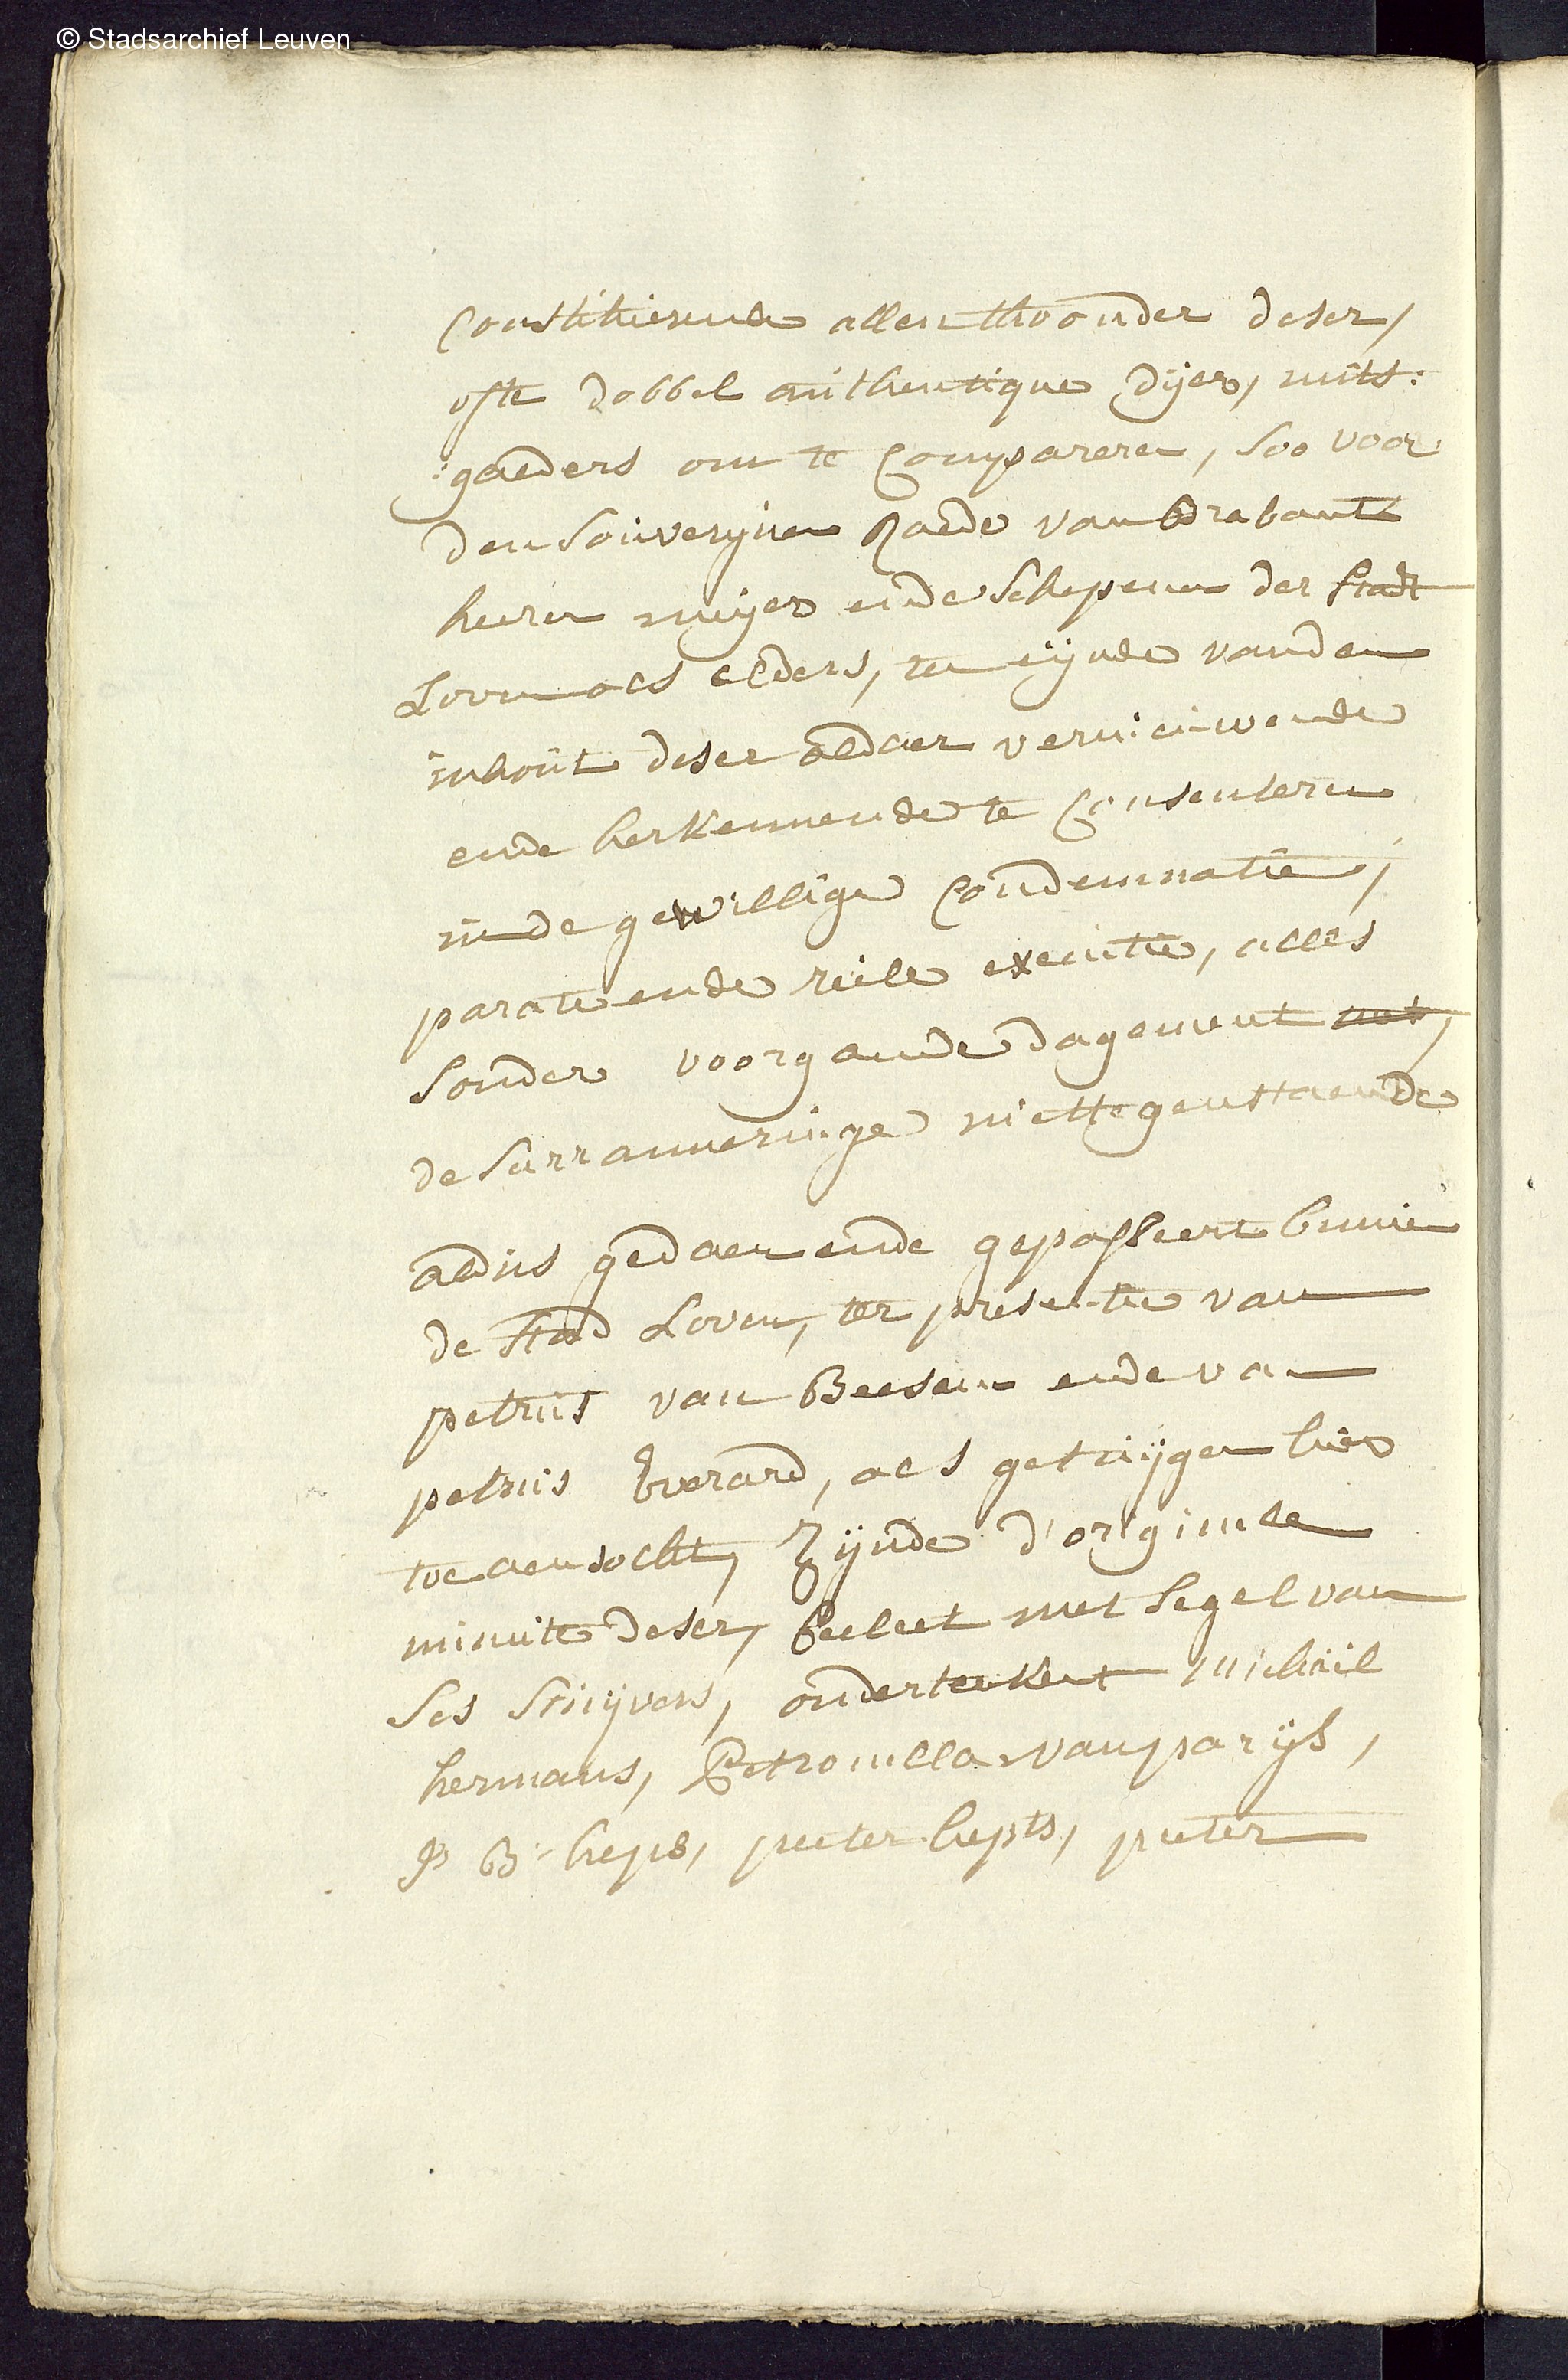 © Stadsarchief Leuven
Constitueren allen thoonder deser,
ofte dobbel authentique dyer, mits:
:gaeders om te Compareren, soo voor
den Souverynen Raede van Brabant
heeren meyer ende Schepenen der Stadt
Loven als elders, ten eynde van den
inhout deser aldaer vernieuwende
ende herkennende te Consenteren
in de gewillige Condemnatie,
parate ende reële executie, alles
sonder voorgaende dagement
de surranneringe niettegenstaende
aldus gedaen ende gepasseert binnen
de Stad Loven, ter presentie van
petrus van Beesem ende van
petrus Everard, als getuijgen hier
toe aensocht, Zijnde d'originele
minute deser, becleet met segel van
ses stuijvers, onderteekent Michiel
hermans, Petronella van parijs,
J B heps, peeter hepts, peeter